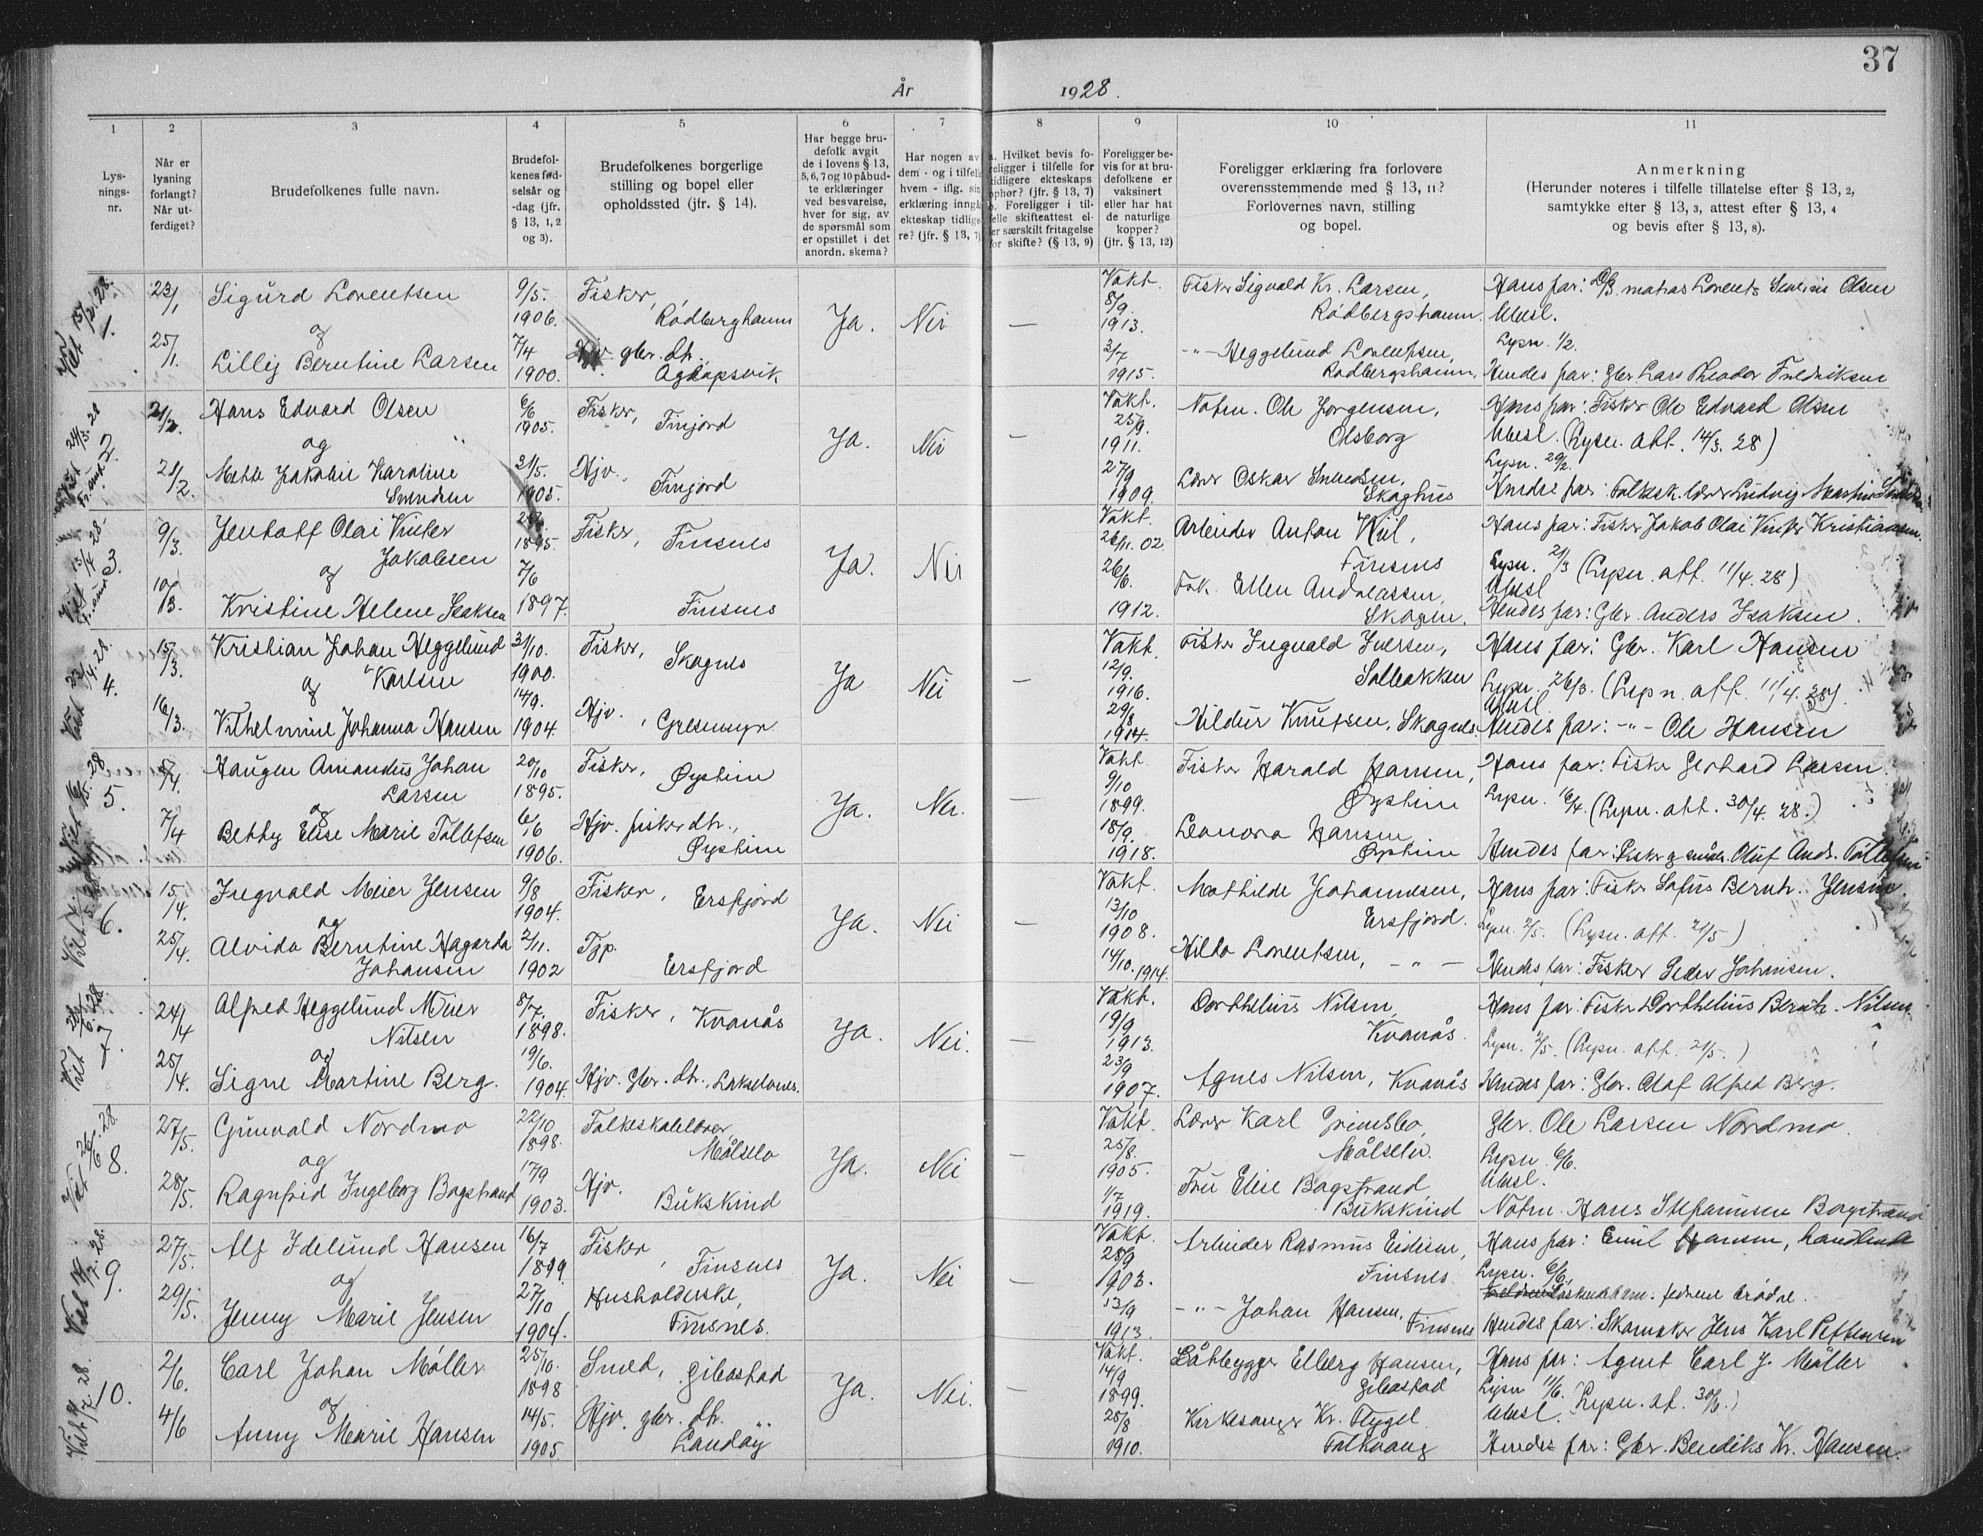 37
År 1928.
1 2 3 4 5 6 7 8 9 10 11
Lysningsnr.
Når er lysning forlangt? Når utferdiget?
Brudefolkenes fulle navn.
Brudefolkenes fødselsår og -dag (jfr. § 13, 1, 2 og 3).
Brudefolkenes borgerlige stilling og bopel eller opholdssted (jfr. § 14).
Har begge brudefolk avgit de i lovens § 13, 5, 6, 7 og 10 påbudte erklæringer ved besvarelse, hver for sig, av de spørsmål som er opstillet i det anordn. skema?
Har nogen av dem - og i tilfelle hvem - iflg. sin erklæring inngå ekteskap tidligere? (jfr. § 13, 7)
a. Hvilket bevis foreligger i tilfelle for tidligere ekteskaps ophør? (jfr. § 13, 7)
b. Foreligger i tilfelle skifteattest eller særskilt fritagelse for skifte? (§ 13, 9)
Foreligger bevis for at brudefolkene er vaksinert eller har hat de naturlige kopper? (jfr. § 13, 12)
Foreligger erklæring fra forlovere overensstemmende med § 13, 11? Forlovernes navn, stilling og bopel.
Anmerkning
(Herunder noteres i tilfelle tillatelse efter § 13, 2, samtykke efter § 13, 3, attest efter § 13, 4 og bevis efter § 13, 8).
1.
23/1 Sigurd Lorentsen 9/5. 1906. Fisker, Rødberghamn Ja. Nei — Vakt. 8/9. 1913. Fisker Sigvald Kr. Larsen, Rødbergshamn. Hans far: Lorents Olsen
og
25/1. Lilly Berntine Larsen 7/4 1900. Hjv. gbr. dt. 3/7 1915. -"- Heggelund Lorentsen, Rødbergshamn, Lysn. 1/2. Hendes far: Gbr. Lars Theodor Fredriksen
2.
21/2. Hans Edvard Olsen 6/6 1905. Fisker, Finjord Ja. Nei — Vakt. 25/9. 1911. Notm. Ole Jørgensen, Olsborg Hans far: Fisker Ole Edvard Olsen
og (Lysn. att. 14/3. 28)
21/2. Mette Jakobie Karoline Svendsen 31/5. 1905. Hjv., Finjord 27/9 1909. Lærer Oskar Svendsen, Skoghus Lysn. 29/2. Hendes far: Folkesk. lærer Ludvig Martin
3.
9/3. Jentoft Olai Vinter Jakobsen 1895. Fisker, Finsnes Ja. Nei Vakt. 26/11. 02. Arbeider Anton Kiil, Finsnes Hans far: Fisker Jakob Olai Kristiansen.
og Lysn. 21/3 (Lysn. att. 11/4. 28)
10/3. Kristine Helene Isaksen 7/6 1897. Finsnes 26/6. 1912. Ellen Andreassen, Skogen. Hendes far: Gbr. Anders Isaksen.
4.
15/3. Kristian Johan Heggelund Karlsen 31/10. 1900. Fisker, Skognes Ja Nei — Vakt. 12/9. 1916. Fisker Ingvald Iversen, Solbakken Hans far: Gbr. Karl Hansen
og Lysn. 26/3. (Lysn. att. 11/4. 28).
16/3. Vilhelmine Johanna Hansen 14/9. 1904 Hjv., Gresmyr 29/8 1914. Hildur Knutsen, Skognes. Hendes far: -"- Ole Hansen
5.
5/4. Haugen Amandus Johan Larsen 20/10 1895. Fisker, Øystein Ja. Nei. — Vakt. 9/10 1899. Fisker Harald Hansen, Øystein Hans far: Fisker Gerhard Larsen.
og Lysn. 16/4. (Lysn. att. 30/4. 28.)
7/4 Betty Elise Marie Tollefsen 6/6 1906. Hjv. fisker dt., Øystein 18/9. 1918. Leonora Hansen Øystein Hendes far: Fisker og Oluf Andr. Tollefsen
6.
15/4. Ingvald Meier Jensen 9/8 1904. Fisker, Ersfjord Ja. Nei — Vakt. 13/10 1908. Mathilde Johannesen, Ersfjord. Hans far: Fisker Sofus Bernh. Jensen.
og Lysn. 2/5. (Lysn. att. 21/5)
25/4. Alvida Berntine Hagarda Johansen 2/11. 1902 Tjp. Ersfjord 14/10. 1914. Hilda Lorentsen, -"- Hendes far: Fisker Peder Johansen.
7.
24/4 Alfred Heggelund Meier Nilsen 8/7. 1898. Fisker, Kvanås Ja. Nei. — Vakt. 19/9 1913. Dorthelius Nilsen, Kvanås. Hans far: Fisker Dorthelius Bernh. Nilsen
og Lysn. 2/5. (Lysn. att. 21/5.)
25/4. Signe Martine Berg. 19/6. 1904. Hjv. gbr. dt., Lakselvnes. 23/9 1907. Agnes Nilsen, Kvanås Hendes far: Gbr. Olaf Alfred Berg.
8.
27/5. Grunvald Nordmo 22/10 1898. Folkeskolelærer, Målselv Ja. Nei — Vakt. 25/8. 1905. Lærer Karl Grimsbo, Målselv. Gbr. Ole Larsen Nordmo.
og Lysn. 6/6.
28/5. Ragnfrid Ingeborg Bogstrand 17/9 1903. Hjv. Bukskind 1/7 1919. Fru Elise Bogstrand, Bukskind Notm. Hans Stefanusen Bogstrand
9.
27/5. Alf Idelund Hansen 16/7 1899. Fisker, Finsnes Ja. Nei — Vakt. 28/9 1903. Arbeider Rasmus Eidem, Finsnes. Hans far: Emil Hansen, handlende
og Lysn. 6/6.
29/5. Jenny Marie Jensen 27/10 1904. Husholderske, Finsnes. 13/9 1913. -"- Johan Hansen, Finsnes Hendes far: Skomaker Jens Karl Pettersen
10.
2/6. Carl Johan Møller 25/10. 1898 Smed, Gibostad Ja. Nei. — Vakt. 14/9 1899. Båtbygger Elberg Hansen, Gibostad Hans far: Agent Carl J. Møller
og Lysn 11/6. (Lysn. at. 30/6.)
4/6 Anny Marie Hansen 14/5. 1905 Hjv. gbr. dt. Landøy 25/8 1910. Kirkesanger Kr. Flygel Hendes far: Gbr. Bendiks Kr. Hansen.